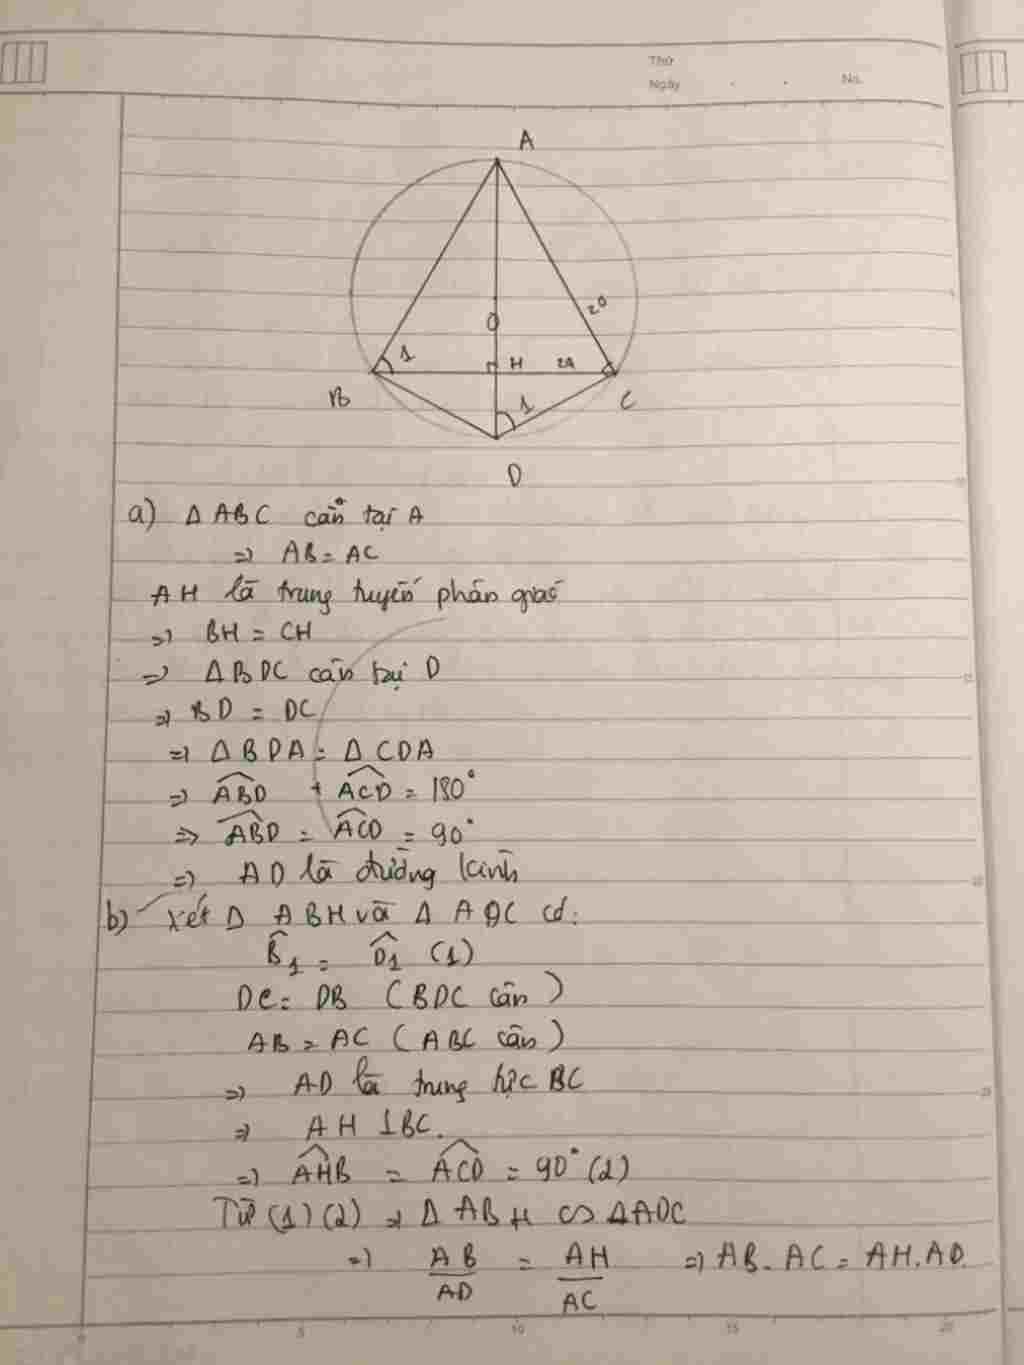 Thứ
Ngày . . No.
A
20
O
1
H 24
B
C
1
D
a) Δ ABC cân tại A
=> AB = AC
AH là trung tuyến phân giác
=> BH = CH
=> Δ BDC cân tại D
=> BD = DC
=> Δ BDA = Δ CDA
=> ABD + ACD = 180°
=> ABD = ACD = 90°
=> AD là đường kính
b) Xét Δ ABH và Δ ADC có:
B̂1 = D̂1 (1)
DC = DB (BDC cân)
AB = AC (ABC cân)
=> AD là trung trực BC
=> AH ⊥ BC.
=> AHB = ACD = 90° (2)
Từ (1) (2) => Δ ABH ∽ Δ ADC
=> AB/AD = AH/AC => AB. AC = AH. AD.
0 5 10 15 20